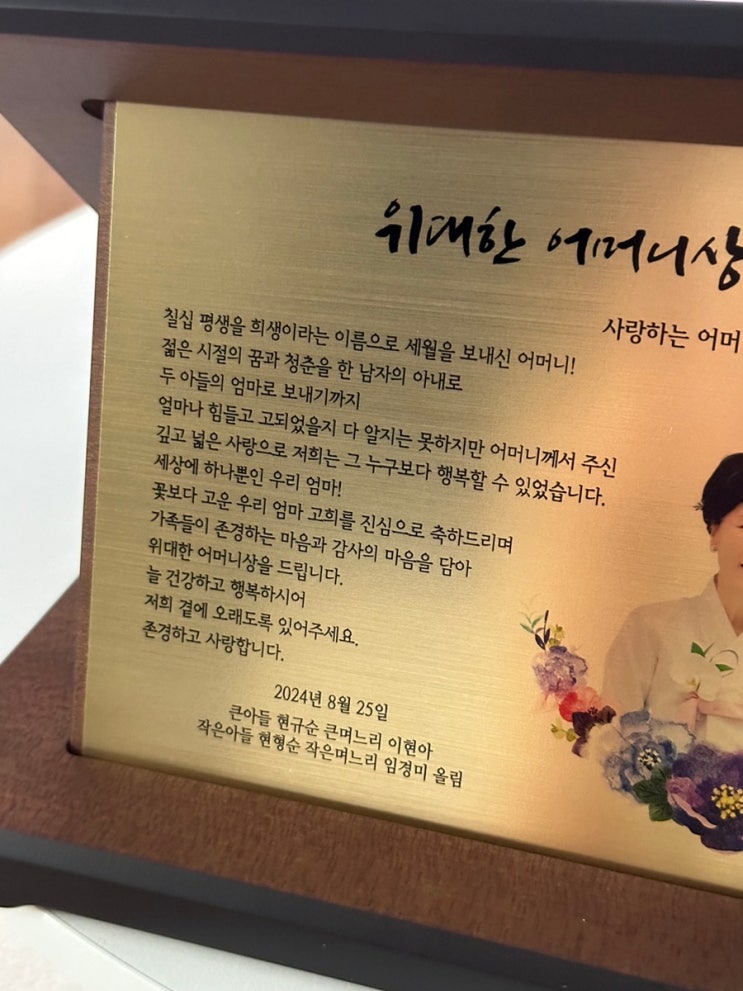 위대한 어머니상
사랑하는 어머
칠십 평생을 희생이라는 이름으로 세월을 보내신 어머니!
젊은 시절의 꿈과 청춘을 한 남자의 아내로
두 아들의 엄마로 보내기까지
얼마나 힘들고 고되었을지 다 알지는 못하지만 어머니께서 주신
깊고 넓은 사랑으로 저희는 그 누구보다 행복할 수 있었습니다.
세상에 하나뿐인 우리 엄마!
꽃보다 고운 우리 엄마 고희를 진심으로 축하드리며
가족들이 존경하는 마음과 감사의 마음을 담아
위대한 어머니상을 드립니다.
늘 건강하고 행복하시어
저희 곁에 오래도록 있어주세요.
존경하고 사랑합니다.
2024년 8월 25일
큰아들 현규순 큰며느리 이현아
작은아들 현형순 작은며느리 임경미 올림